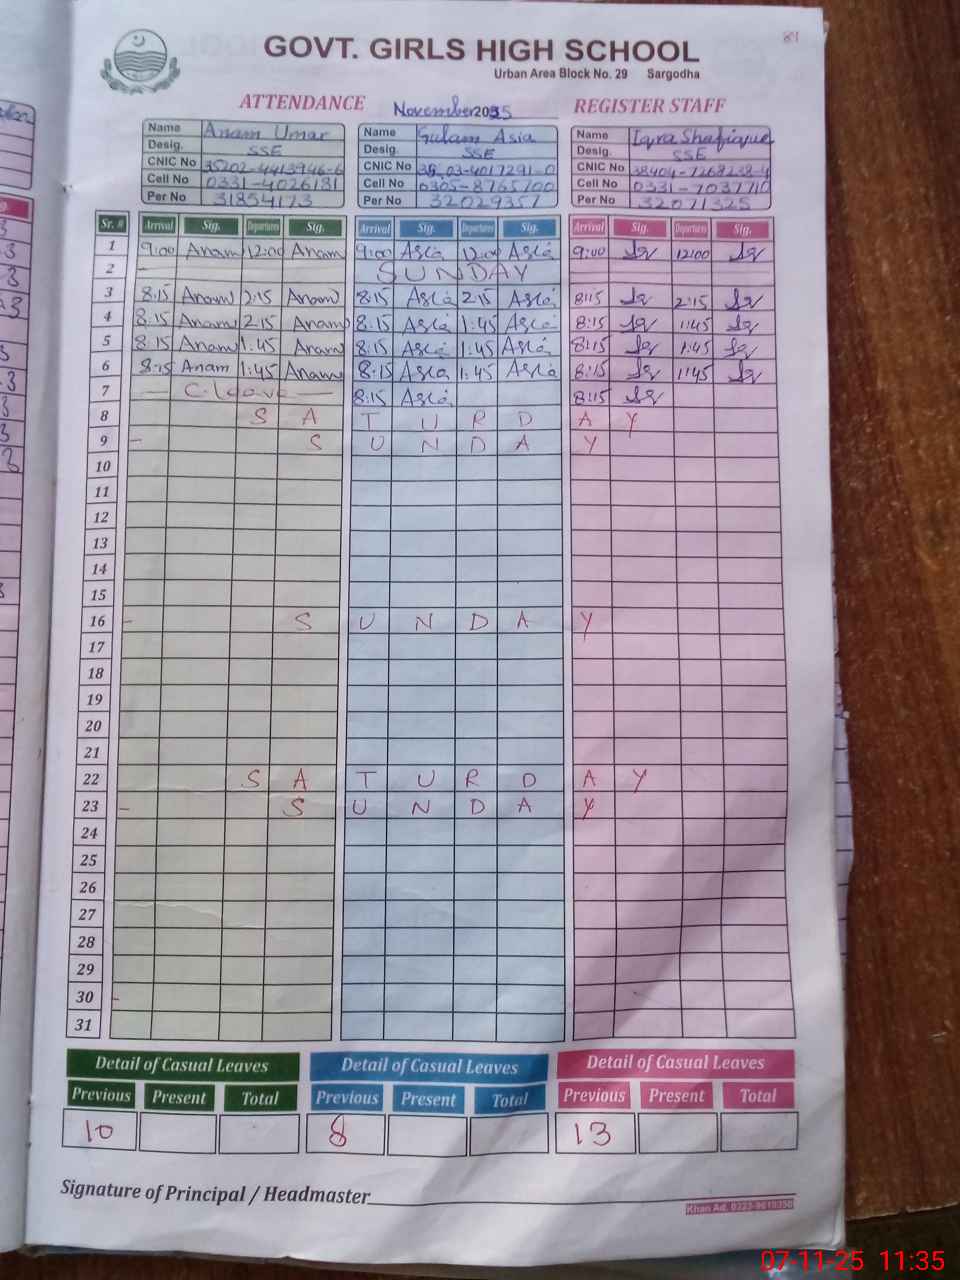 84
GOVT. GIRLS HIGH SCHOOL
Urban Area Block No. 29 Sargodha
ATTENDANCE November 2025 REGISTER STAFF
Name Anam Umar Name Gulam Asia Name Iqra Shafique
Desig. SSE Desig. SSE Desig. SSE
CNIC No 35202-4413946-6 CNIC No CNIC No 38404-7268238-4
Cell No 0331-4026181 Cell No 0305-8765700 Cell No 0331-7037710
Per No 31854173 Per No 32029357 Per No 32071325
Sr. # Arrival Sig. Departures Sig. Arrival Sig. Departures Sig. Arrival Sig. Departures Sig.
1 9:00 Anam 12:00 Anam 9:00 Asia 12:00 Asia 9:00 12:00
2 - SUNDAY
3 8:15 Anam 2:15 Anam 8:15 Asia 2:15 Asia 8:15 2:15
4 8:15 Anam 2:15 Anam 8:15 Asia 1:45 Asia 8:15 1:45
5 8:15 Anam 1:45 Anam 8:15 Asia 1:45 Asia 8:15 1:45
6 8:15 Anam 1:45 Anam 8:15 Asia 1:45 Asia 8:15 1:45
7 — C. leave — 8:15 Asia 8:15
8 S A T U R D A Y
9 - S U N D A Y
10
11
12
13
14
15
16 - S U N D A Y
17
18
19
20
21
22 S A T U R D A Y
23 - S U N D A Y
24
25
26
27
28
29
30 -
31
Detail of Casual Leaves Detail of Casual Leaves Detail of Casual Leaves
Previous Present Total Previous Present Total Previous Present Total
10 8 13
Signature of Principal / Headmaster
Khan Ad. 0323-9619350
07-11-25 11:35